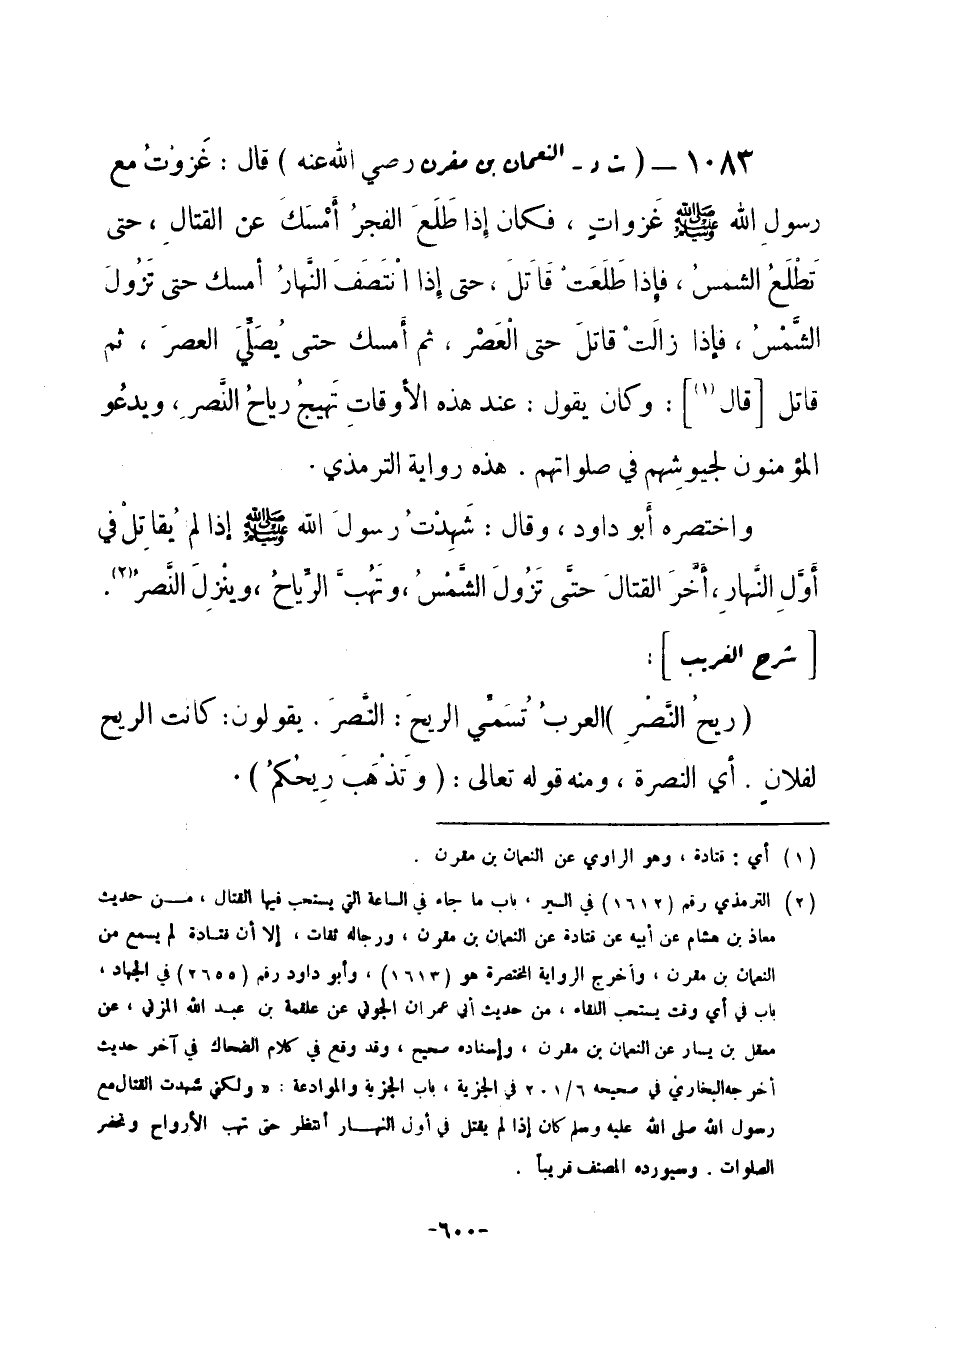 ١٠٨٣ – ( ت د ـ النعمان بن مقرن رضي الله عنه ) قال : غَزوْتُ مع
رسولِ الله ﷺ غَزواتٍ ، فكان إذا طَلَعَ الفجرُ أَمْسَكَ عن القتالِ ، حتى
تَطْلَعُ الشمسُ ، فإذا طَلَعَتْ قَاتَلَ ، حتى إذا انْتَصَفَ النَّهارُ أمسك حتى تَزُولَ
الشَّمْسُ ، فإذا زالَتْ قاتَلَ حتى الْعَصْرِ ، ثم أَمسك حتى يُصَلِّيَ العصرَ ، ثم
قاتل [قال(١)] : وكان يقول : عند هذه الأوقاتِ تَهِيجُ رياحُ النَّصرِ ، ويدعُو
المؤمنون لجيوشِهم في صلواتهم . هذه رواية الترمذي .
واختصره أبو داود ، وقال : شَهِدْتُ رسولَ الله ﷺ إذا لم يُقاتِلْ في
أَوَّلِ النَّهارِ ، أَخَّرَ القتالَ حتَّى تَزُولَ الشَّمْسُ ، وتَهُبَّ الرِّياحُ ، وينْزِلَ النَّصرُ(٢) .
[ شرح الغريب ] :
( ريحُ النَّصْرِ ) العربُ تُسَمِّي الريحَ : النَّصرَ . يقولون : كانت الريح
لفلانٍ . أي النصرة ، ومنه قوله تعالى : ( وَتَذْهَبَ رِيحُكمْ ) .
(١) أي : قتادة ، وهو الراوي عن النعمان بن مقرن .
(٢) الترمذي رقم (١٦١٢) في السير ، باب ما جاء في الساعة التي يستحب فيها القتال ، مــن حديث
معاذ بن هشام عن أبيه عن قتادة عن النعمان بن مقرن ، ورجاله ثقات ، إلا أن قتــادة لم يسمع من
النعمان بن مقرن ، وأخرج الرواية المختصرة هو (١٦١٣) ، وأبو داود رقم (٢٦٥٥) في الجهاد ،
باب في أي وقت يستحب اللقاء ، من حديث أبي عمران الجوني عن علقمة بن عبــد الله المزني ، عن
معقل بن يسار عن النعمان بن مقرن ، وإسناده صحيح ، وقد وقع في كلام الضحاك في آخر حديث
أخرجه البخاري في صحيحه ٢٠١/٦ في الجزية ، باب الجزية والموادعة : « ولكني شهدت القتال مع
رسول الله صلى الله عليه وسلم كان إذا لم يقتل في أول النهــار أنتظر حتى تهب الأرواح وتحضر
الصلوات . وسيورده المصنف قريباً .
-٦٠٠-